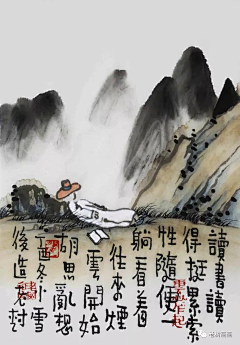 讀書讀
得挺累索
性隨便
躺看着
往來煙
雲開始
胡思亂想
冬小雪
後造老樹